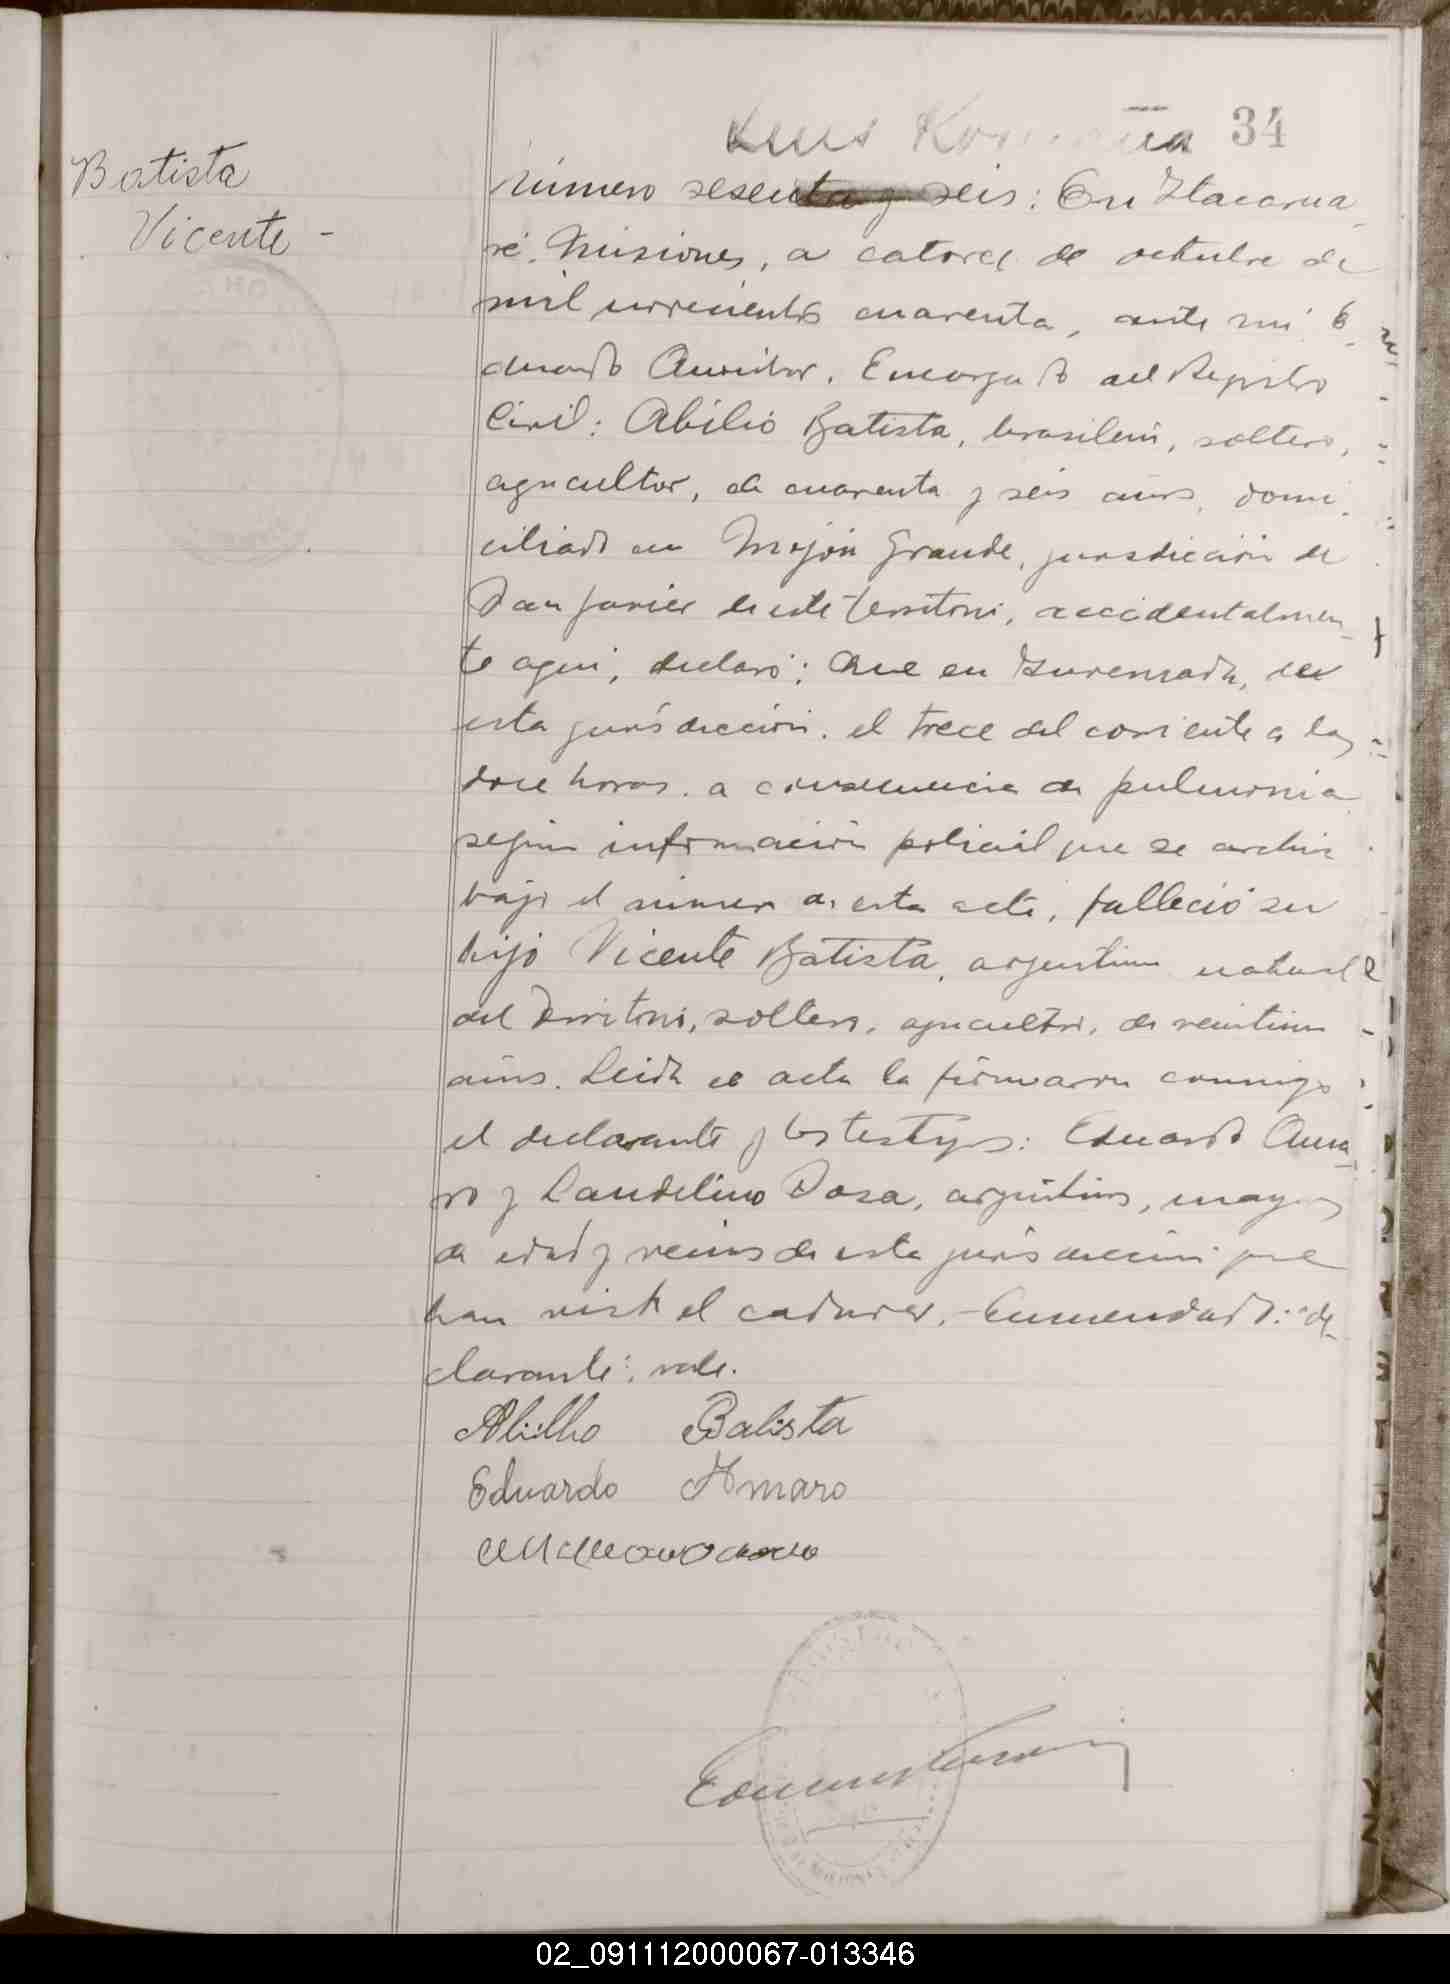 34
Batista
Vicente -
Número sesenta y seis: En Itacarua
ré, Misiones, a catorce de octubre de
mil novecientos cuarenta, ante mi E
duardo Encargado del Registro
Civil: Abilio Batista, brasileño, soltero,
agricultor, de cuarenta y seis años, domi
ciliado en Mojón Grande, jurisdicción de
San Javier de este territorio, accidentalmen
te aqui, declaró: Que en en
esta jurisdicción, el trece del corriente a las
doce horas, a consecuencia de pulmonia
según información policial que se archiva
bajo el número de esta acta, falleció su
hijo Vicente Batista, argentino natural
del Territorio, soltero, agricultor, de veintiun
años. Leida el acta la firmaron conmigo
el declarante y los testigos: Eduardo Ama
ro y Candelino Dosa, argentinos, mayores
de edad y vecinos de esta jurisdicción que
han visto el cadaver.- Enmendado: "de
clarante": vale.
Abilho Batista
Eduardo Amaro
02_091112000067-013346